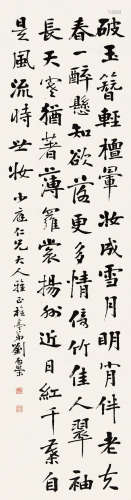 破玉簪輕檀暈妝成雪月明宵伴老夫
春一醉懸知欲落更多情倚竹佳人翠袖
長天寒猶著薄羅裳揚州近日紅千葉自
是風流時世妝 小庭仁兄大人雅正桂臺弟劉